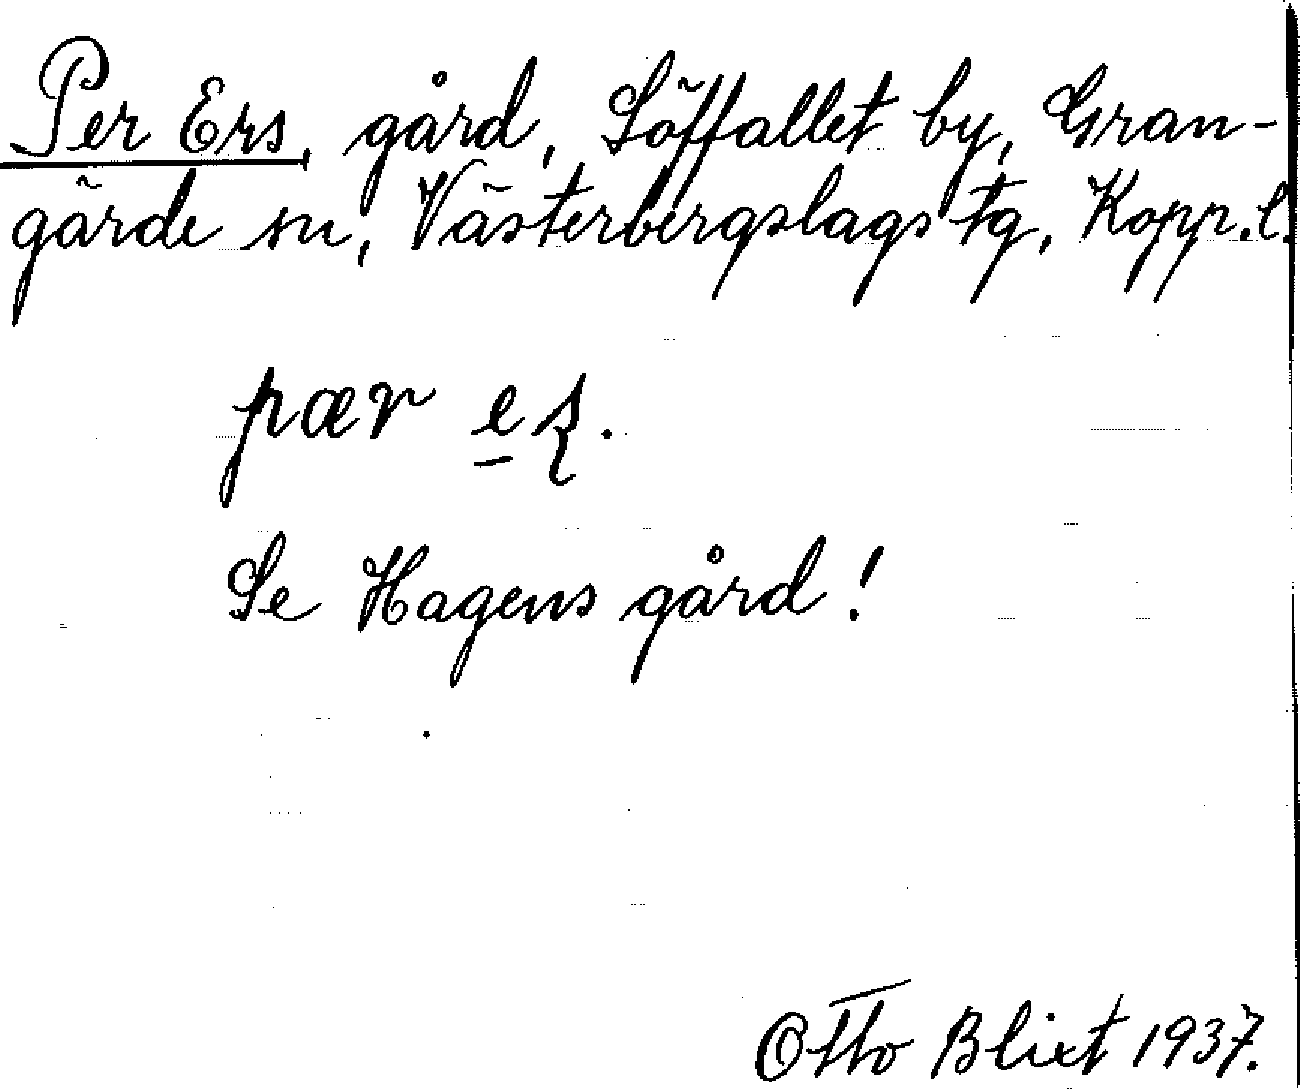 Per Ers, gård, Söffallet by, Gran-
gärde sn, Västerbergslags tg, Kopp. l.
pær
Se Hagens gård!
Otto Blixt 1937.